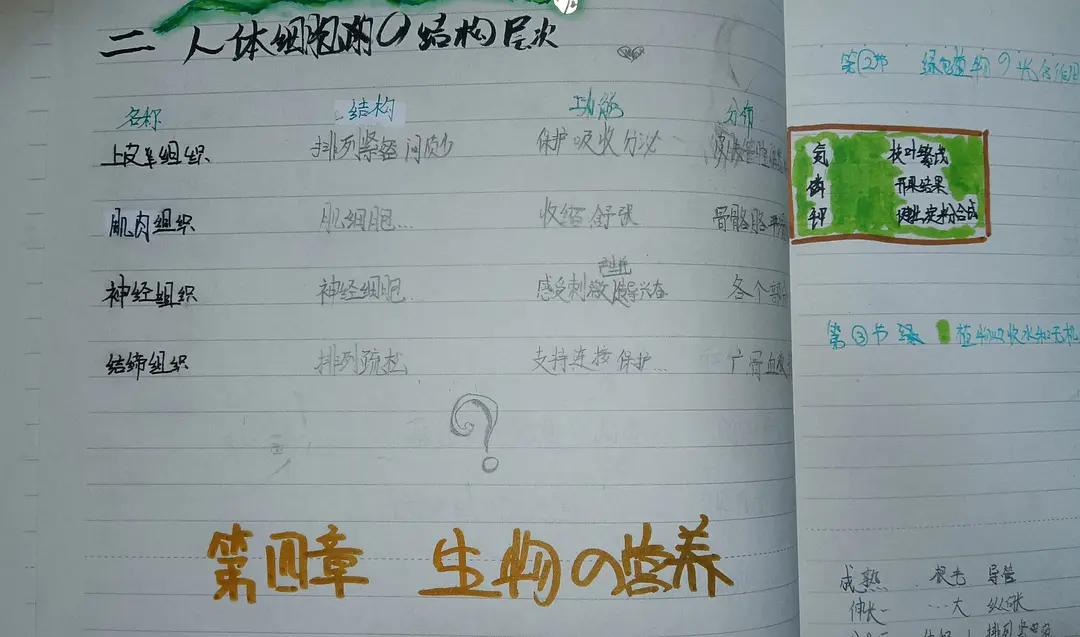 二 人体细胞的の结构层次
名称 结构 功能 分布
上皮组织 排列紧密 间质少 保护 吸收 分泌
肌肉组织 肌细胞... 收缩 舒张 骨骼
产生并
神经组织 神经细胞... 感受刺激 传导兴奋 各个部
结缔组织 排列疏松 支持连接 保护... 广 骨血
第四章 生物の营养
第②节 绿色植物の光合作用
氮 枝叶繁茂
磷 开果结果
钾 健壮淀粉合成
第③节 绿 植物吸收水和无机
成熟 根毛 导管
伸长 ...大 纵张